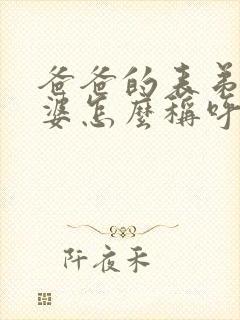 爸爸的表弟
婆怎麼稱呼
阡夜禾